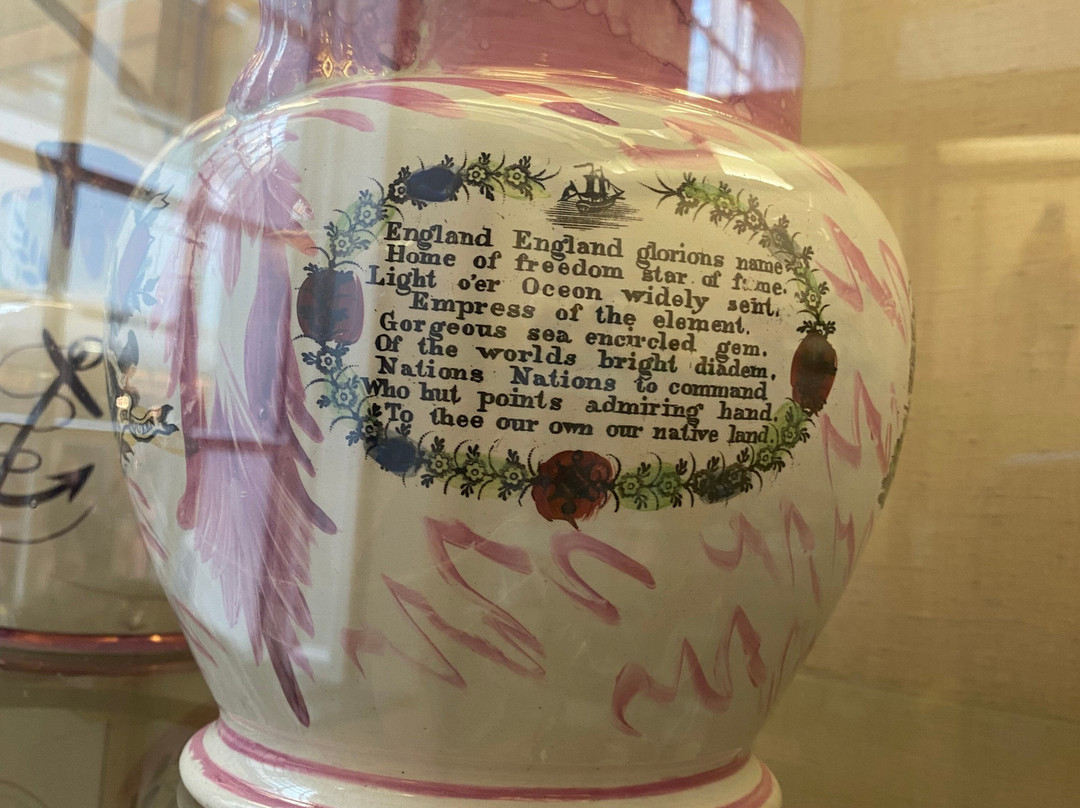 England England glorions name
Home of freedom star of fame.
Light o'er Ocean widely sent.
Empress of the element.
Gorgeous sea encircled gem.
Of the worlds bright diadem.
Nations Nations to command
Who but points admiring hand.
To thee our own our native land.